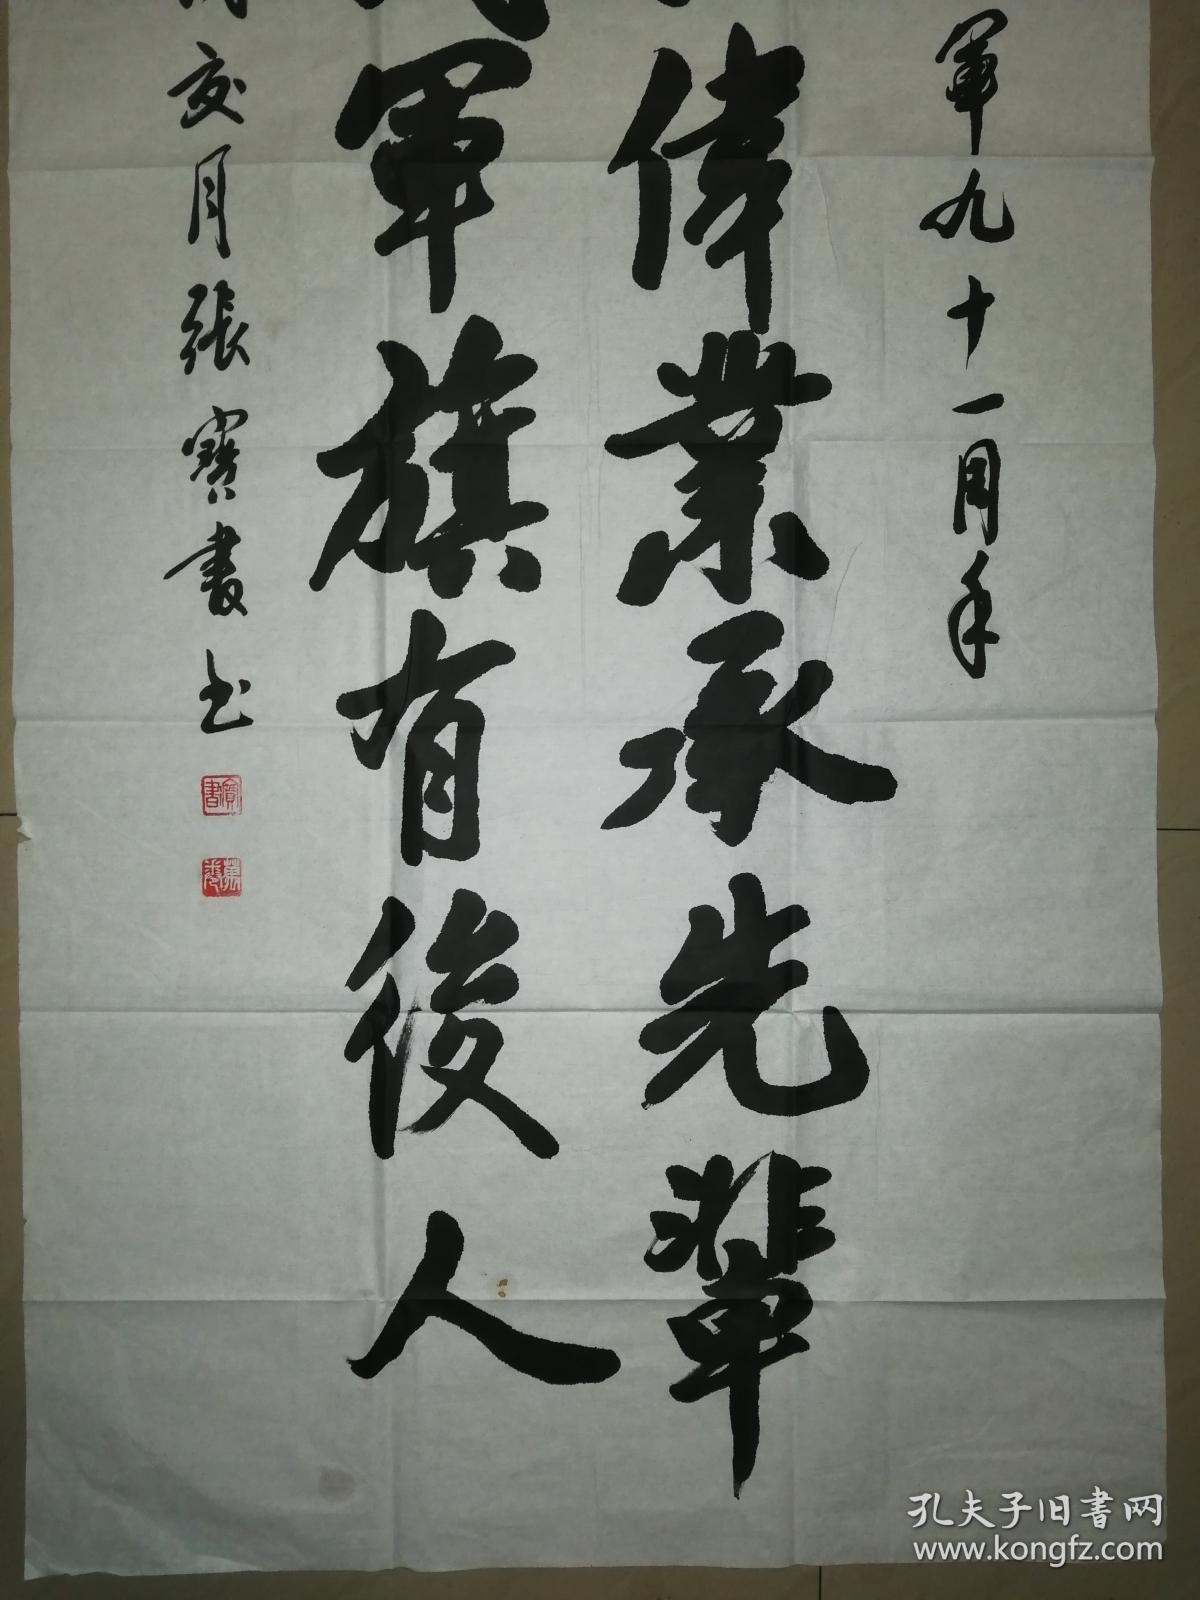 軍九十一周年
偉業承先輩
軍旗有後人
亥月張寶書书
寶書
孔夫子旧書网
www.kongfz.com